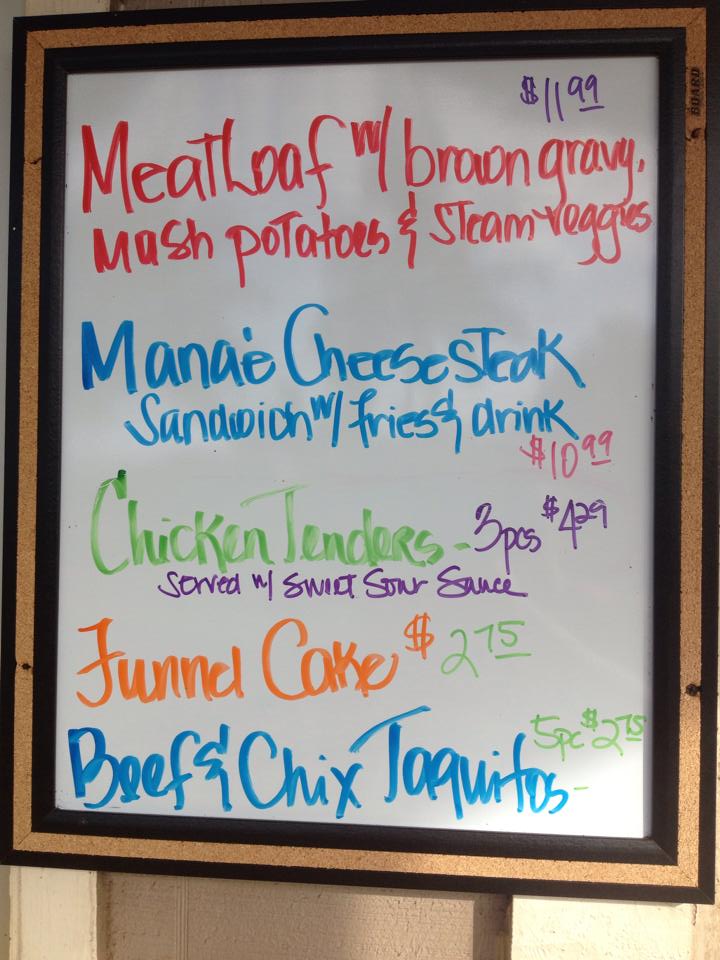 $11.99
MeatLoaf w/ brown gravy,
Mash potatoes & Steam veggies
Manaè Cheesesteak
Sandwich w/ fries & drink
$10.99
Chicken Tenders - 3pcs $4.29
Served w/ Sweet Sour Sauce
Funnel Cake $2.75
Beef & Chix Taquitos - 5pc $2.75
BOARD